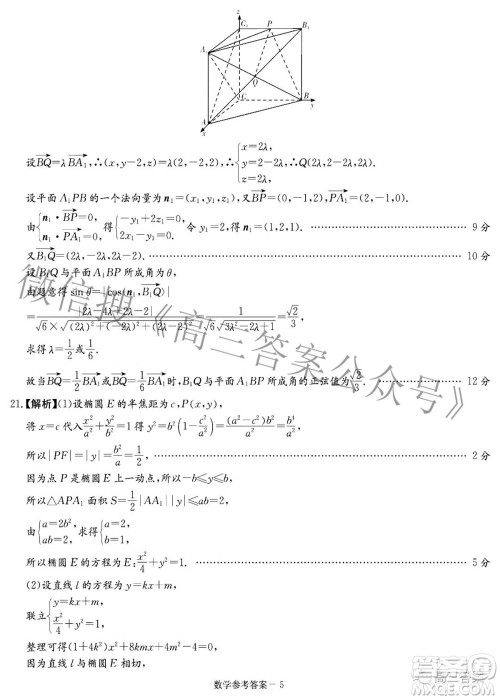 z
C₁
P
B₁
A₁
Q
C
A
B
x
y
设BQ=λBA₁,∴(x,y-2,z)=λ(2,-2,2),∴{x=2λ, y=2-2λ,∴Q(2λ,2-2λ,2λ). z=2λ,
设平面 A₁PB 的一个法向量为 n₁=(x₁,y₁,z₁),又BP=(0,-1,2),PA₁=(2,-1,0).
由{n₁·BP=0, n₁·PA₁=0 得{-y₁+2z₁=0, 2x₁-y₁=0. 令 y₁=2,得 n₁=(1,2,1). 9 分
又B₁Q=(2λ,-2λ,2λ-2). 10 分
设 B₁Q 与平面 A₁BP 所成角为 θ,
由题意得 sin θ=|cos⟨n₁,B₁Q⟩|
=|2λ-4λ+2λ-2|/(√6×√((2λ)²+(-2λ)²+(2λ-2)²))=1/(√6·√(3λ²-2λ+1))=√2/3,
求得 λ=1/2或1/6.
故当BQ=1/2BA₁或BQ=1/6BA₁时,B₁Q 与平面 A₁BP 所成角的正弦值为√2/3. 12 分
21.【解析】(1)设椭圆 E 的半焦距为 c,P(x,y),
将 x=c 代入x²/a²+y²/b²=1得 y²=b²(1-c²/a²)=(a²-c²)b²/a²=b⁴/a²,
所以|PF|=|y|=b²/a=1/2,
因为点 P 是椭圆 E 上一动点,所以-b≤y≤b,
所以△APA₁ 面积 S=1/2|AA₁||y|≤ab=2,
由{a=2b², ab=2, 求得{a=2, b=1,
所以椭圆 E 的方程为 E:x²/4+y²=1. 5 分
(2)设直线 l 的方程为 y=kx+m,
联立{y=kx+m, x²/4+y²=1.
整理可得(1+4k²)x²+8kmx+4m²-4=0.
因为直线 l 与椭圆 E 相切,
数学参考答案-5
微信搜《高三答案公众号》